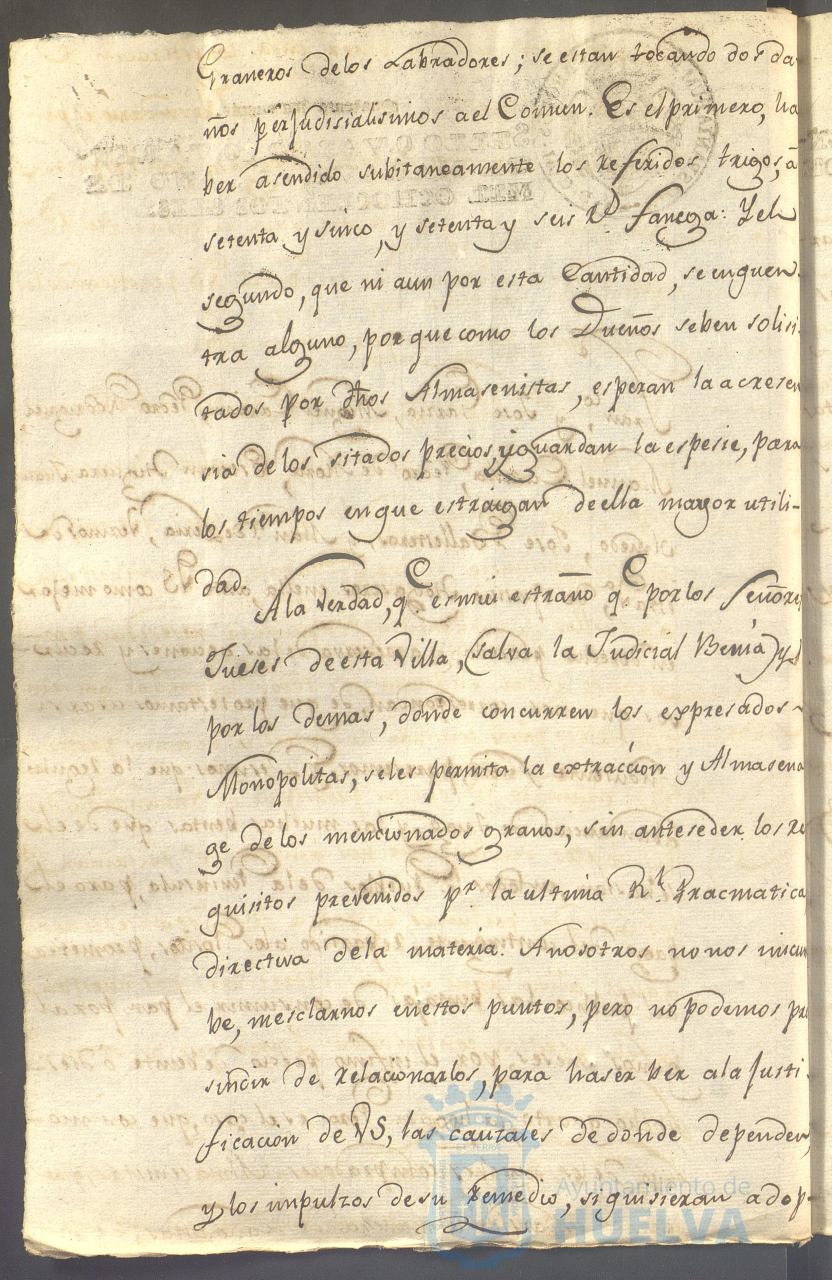 Graneros delos Labradores; se estan tocando dos da-
ños perjudisialisimos a el Comun. Es el primero, ha
ver asendido subitaneamente los referidos trigos, á
setenta y sinco, y setenta y seis Rs. fanega: Y el
segundo, que ni aun por esta Cantidad, se enquen-
tra alguno, porque como los Dueños se ben solisi-
tados por dhos Almasenistas, esperan la acresen
sia delos sitados precios, y guardan la espesie, para
los tiempos enque estraigan de ella mayor utili-
dad.
Ala Verdad, qe. es mui estraño qe. por los Señores
Jueses de esta Villa, (salva la Judicial Benia) y
por los demas, donde concurren los expresados
Monopolitas, seles permita la extraccion y Almasena
ge delos mencionados granos, sin anteseder los re
quisitos prevenidos pr. la ultima Rl. Pracmatica
directiva dela materia. Anosotros no nos incum
be, mesclarnos enestos puntos, pero no podemos pre
sindir de relacionarlos, para haser ver ala justi-
ficacion de VS, las cauzales de donde dependen,
y los impulzos desu Remedio, si quisieran adop-
Ayuntamiento de
HUELVA